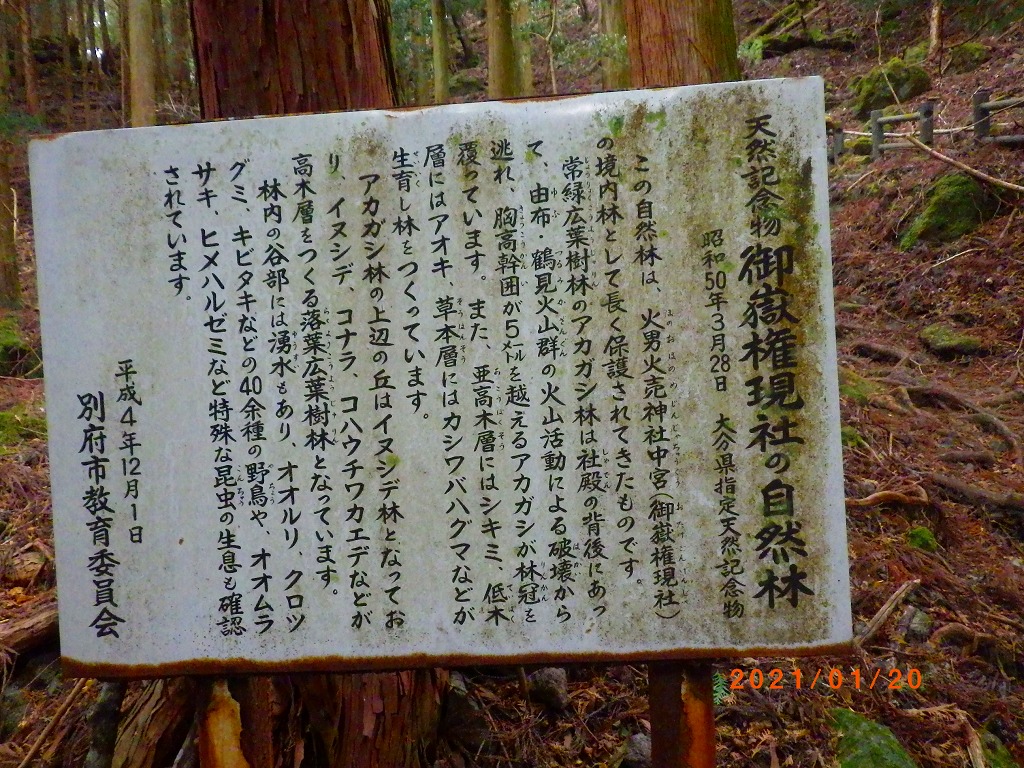 天然記念物 御嶽権現社の自然林
昭和50年3月28日 大分県指定天然記念物
この自然林は、火男火売神社中宮(御嶽権現社)
の境内林として長く保護されてきたものです。
常緑広葉樹林のアカガシ林は社殿の背後にあっ
て、由布・鶴見火山群の火山活動による破壊から
逃れ、胸高幹囲が5メートルを越えるアカガシが林冠を
覆っています。また、亜高木層にはシキミ、低木
層にはアオキ、草本層にはカシワバハグマなどが
生育し林をつくっています。
アカガシ林の上辺の丘はイヌシデ林となってお
り、イヌシデ、コナラ、コハウチワカエデなどが
高木層をつくる落葉広葉樹林となっています。
林内の谷部には湧水もあり、オオルリ、クロツ
グミ、キビタキなどの40余種の野鳥や、オオムラ
サキ、ヒメハルゼミなど特殊な昆虫の生息も確認
されています。
平成4年12月1日
別府市教育委員会
2021/01/20